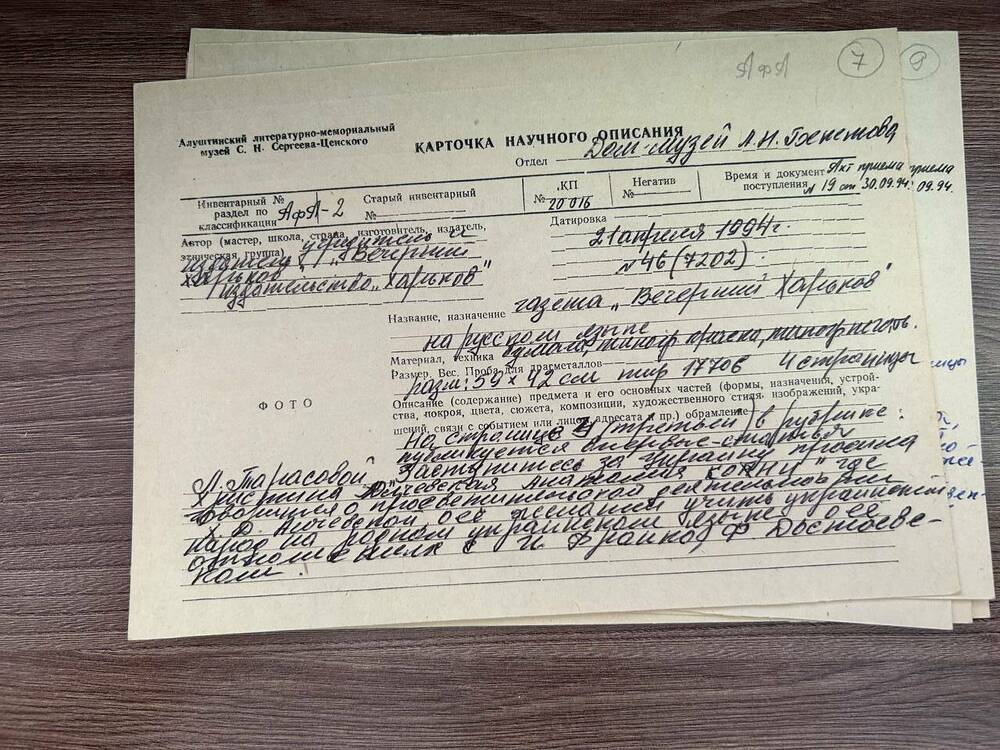 АфА
7
9
Алуштинский литературно-мемориальный
музей С. Н. Сергеева-Ценского
КАРТОЧКА НАУЧНОГО ОПИСАНИЯ
Отдел Дом-музей А.Н. Бекетова
Инвентарный №
раздел по
классификации АфА-2
Старый инвентарный
№
КП
№ 20016
Негатив
№
Время и документ Акт приема
поступления № 19 от 30.09.94.
приема
09.94.
Автор (мастер, школа, страна, изготовитель, издатель,
этническая группа) учредитель и
издатель „Вечерний
Харьков"
издательство „Харьков"
Датировка
21 апреля 1994 г.
№ 46 (7202).
Название, назначение газета „Вечерний Харьков"
на русском языке
Материал, техника бумага, типогр. краска, типогр. печать.
Размер. Вес. Проба для драгметаллов
разм: 59 х 42 см тир 17706 4 страницы
ФОТО
Описание (содержание) предмета и его основных частей (формы, назначения, устрой-
ства, покроя, цвета, сюжета, композиции, художественного стиля, изображений, укра-
шений, связи с событием или лица, адресата и пр.) обрамление
На странице 3 (третьей) в рубрике:
публикуется впервые - статья
Л. Тарасовой „Заступитесь за Украину просила
Христина Алчевская Анатолия Кони" где
говорится о просветительской деятельности
Х. Д. Алчевской о её желании учить украинский
народ на родном украинском языке о её
отношениях к И. Франко, Ф. Достоевс-
ком.